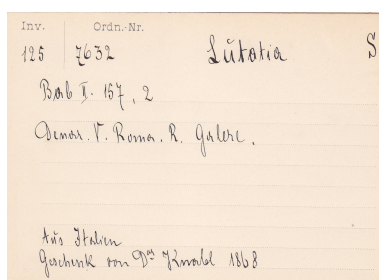 Inv. Ordn.-Nr.
125 7632 Lutatia S
Bab II. 157, 2
Denar. V. Roma. R. Galere.
Aus Italien
Geschenk von Dr Knabl 1868